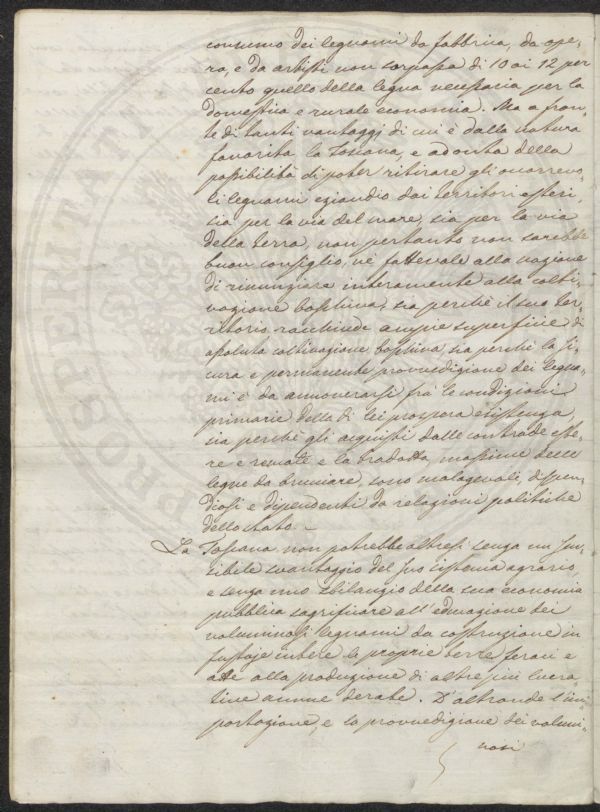 consumo dei legnami da fabbrica, da ope-
ra, e da artisti non sorpassa di 10 ai 12 per
cento quello della legna necessaria per la
domestica e rurale economia. Ma a fron-
te di tanti vantaggi di cui è dalla natura
favorita la Toscana, e adonta della
possibilità di poter ritirare gli occorrevo-
li legnami eziandio dai territori esteri,
sia per la via del mare, sia per la via
della terra, non pertanto non sarebbe
buon consiglio, né fattevole alla nazione
di rinunziare interamente alla colti-
vazione boschiva, sia perchè il suo ter-
ritorio racchiude ampie superficie di
assoluta coltivazione boschiva, sia perchè la si-
cura e permanente provvedigione dei legna-
mi è da annoverarsi frà le condizioni
primarie della di lei prospera esistenza,
sia perchè gli acquisti dalle contrade este-
re e remote e la tradotta, massime delle
legne da bruciare, sono malagevoli, dispen-
diosi e dipendenti da relazioni politiche
dello stato. –
La Toscana non potrebbe altresì senza un sen-
sibile svantaggio del suo sistema agrario,
e senza uno sbilancio della sua economia
pubblica sagrificare all'educazione dei
voluminosi legnami da costruzione in
fustaje intere le proprie terre feraci e
atte alla produzione di altre più lucra-
tive annue derate. D'altronde l'im-
portazione, e la provvedigione dei volumi-
nosi
PROSPERITATI